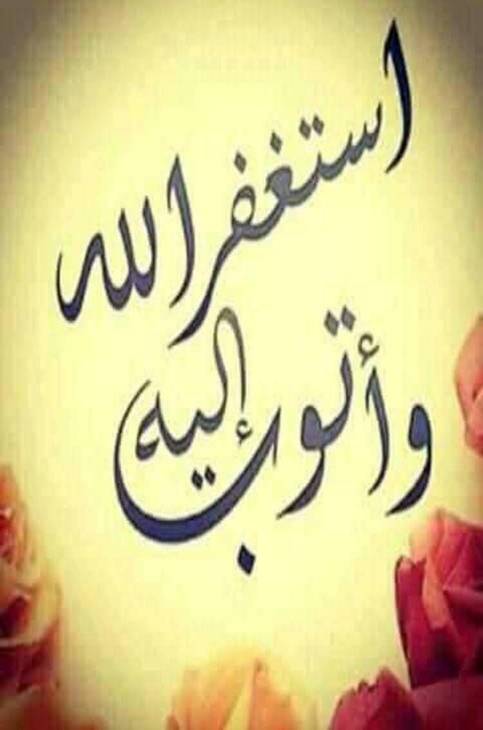 استغفر الله
وأتوب إليه